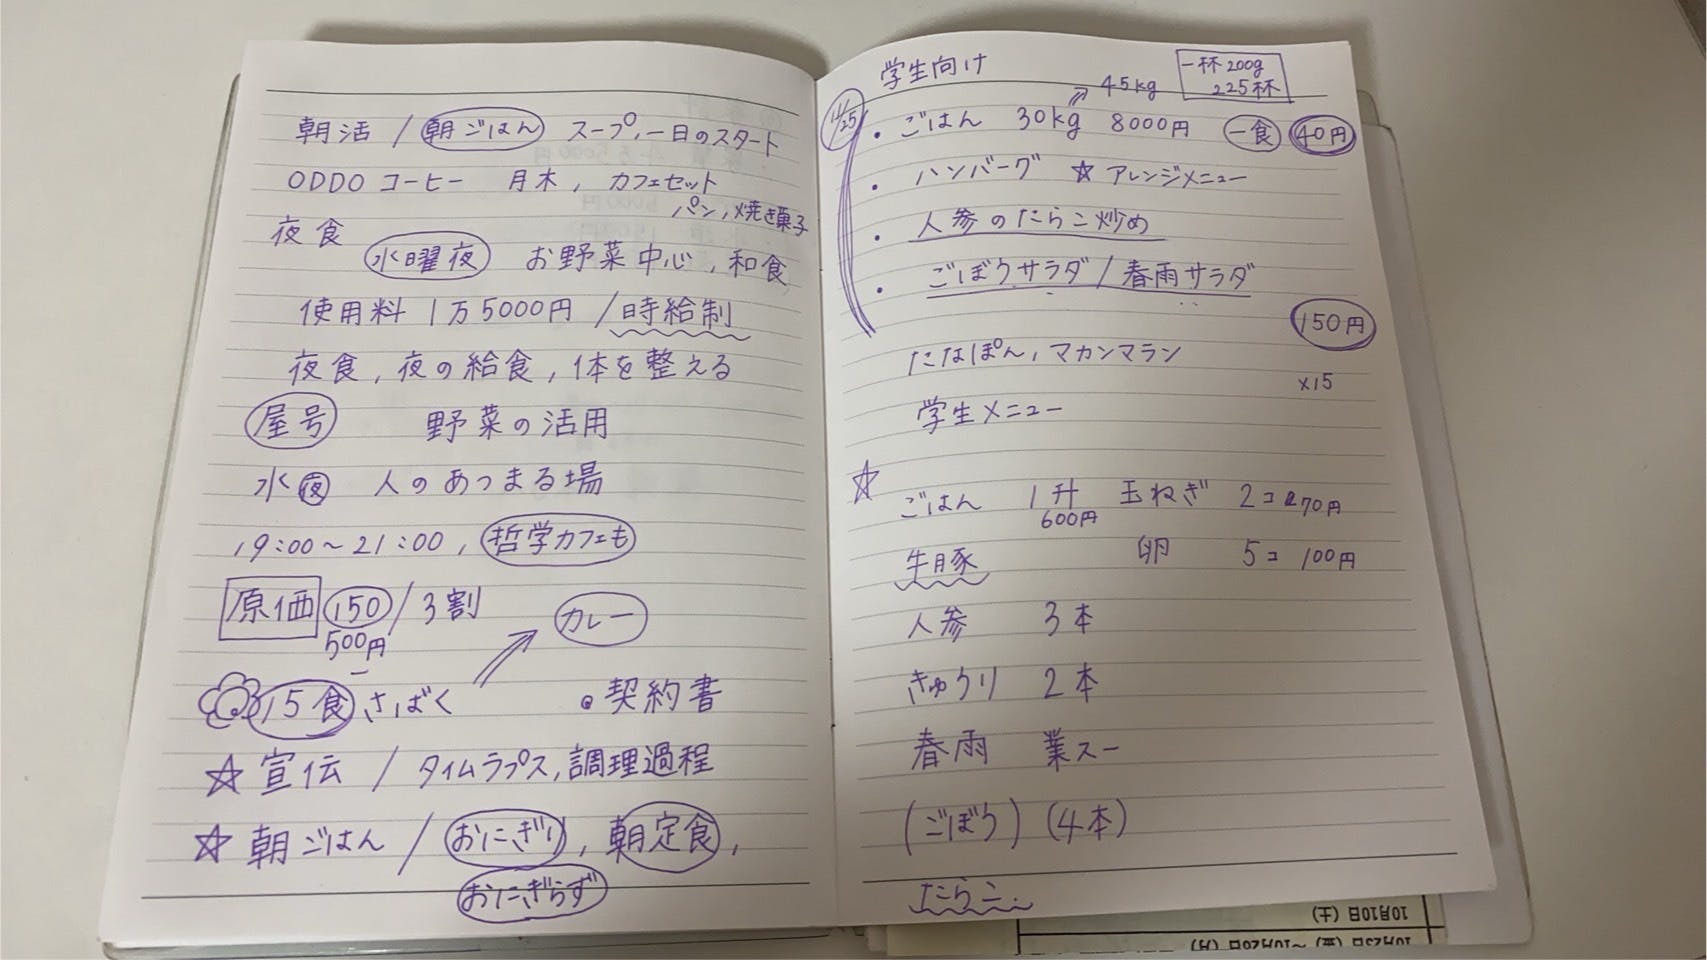 朝活 / 朝ごはん スープ, 一日のスタート
ODDO コーヒー 月木, カフェセット
パン, 焼き菓子
夜食
水曜夜 お野菜中心, 和食
使用料 1万5000円 / 時給制
夜食, 夜の給食, 体を整える
屋号 野菜の活用
水夜 人のあつまる場
19:00〜21:00, 哲学カフェも
原価 150 / 3割
500円
カレー
15食 さばく
契約書
☆ 宣伝 / タイムラプス, 調理過程
☆ 朝ごはん / おにぎり, 朝定食,
おにぎらず
学生向け
45kg
一杯200g
225杯
11/25
・ごはん 30kg 8000円 一食 40円
・ハンバーグ ☆ アレンジメニュー
・人参のたらこ炒め
・ごぼうサラダ / 春雨サラダ
150円
たなぽん, マカンマラン
×15
学生メニュー
☆
ごはん 1升 玉ねぎ 2コ 70円
600円
牛豚 卵 5コ 100円
人参 3本
きゅうり 2本
春雨 業スー
(ごぼう) (4本)
たらこ
10月10日 (土)
10月23日 (金) 〜10月26日 (月)